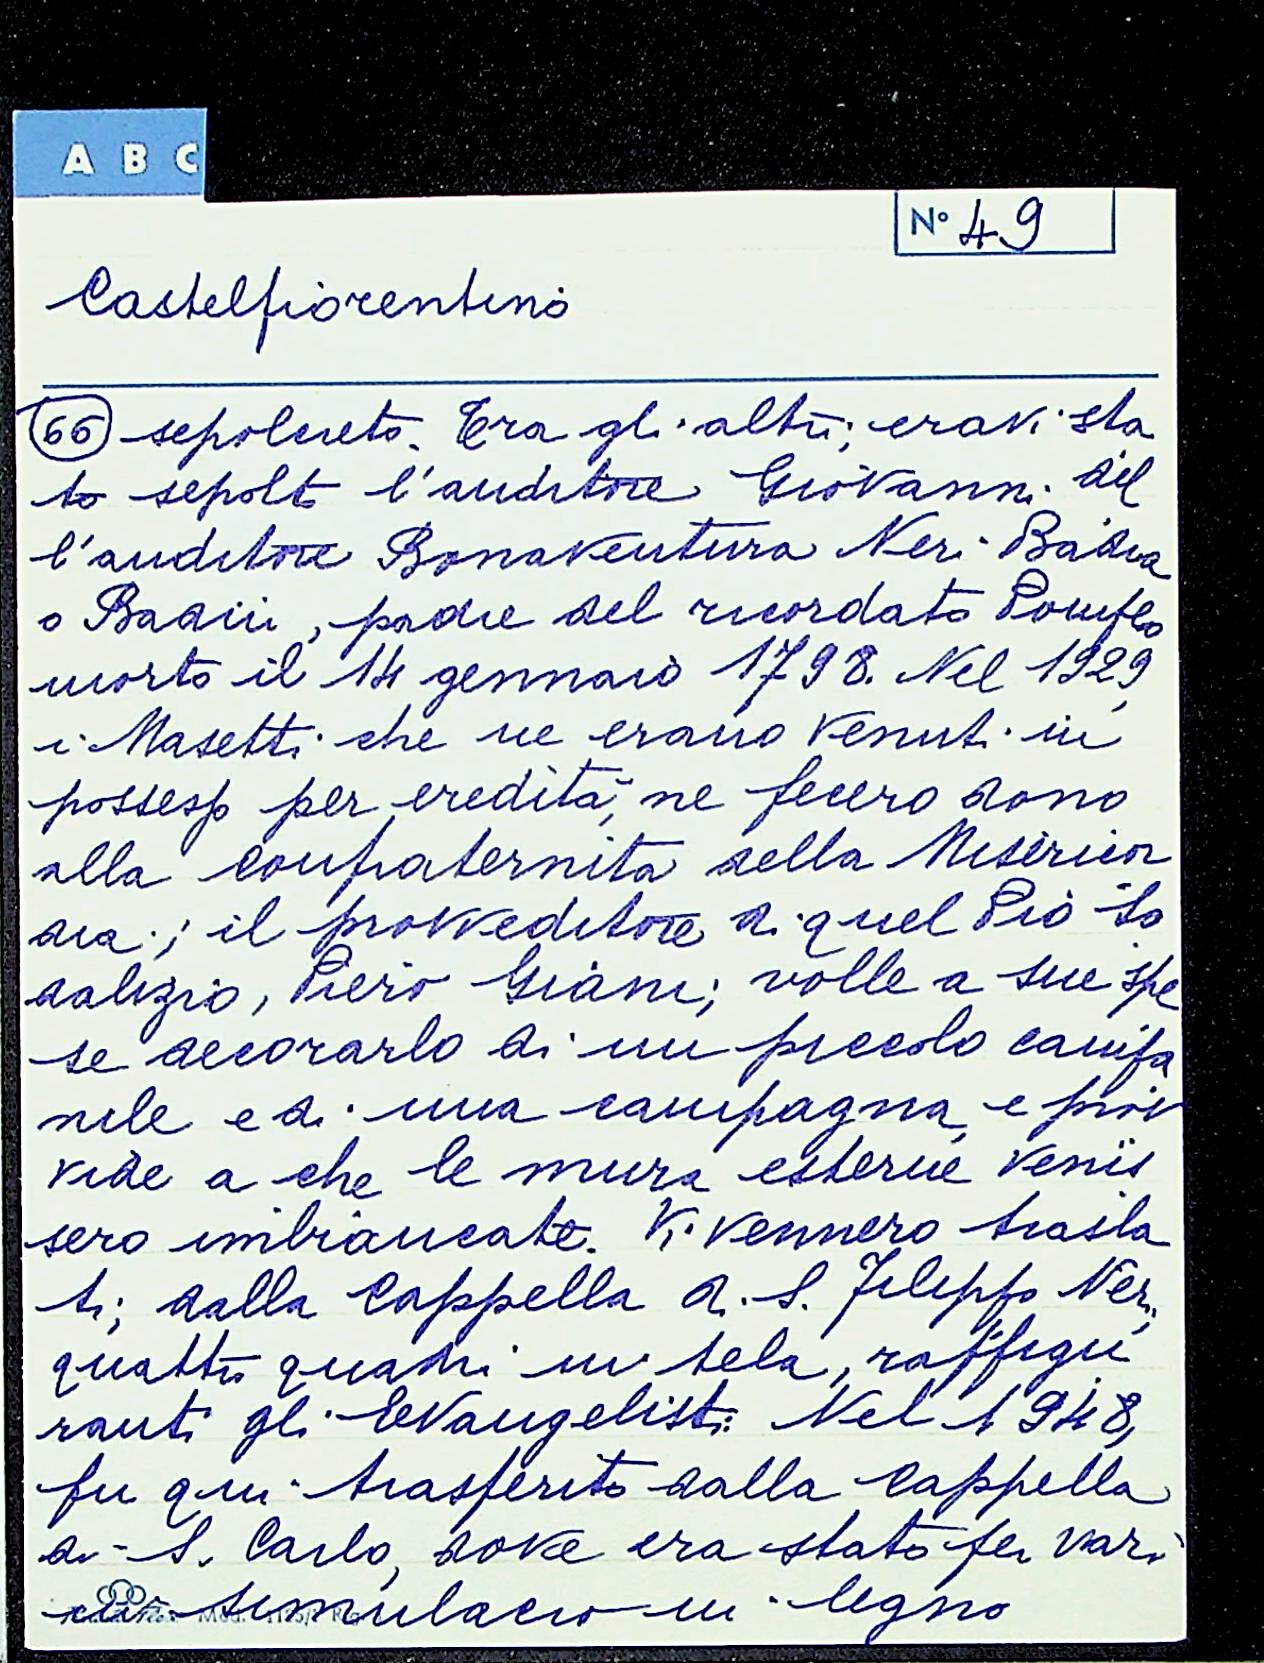 A B C
N° 49
Castelfiorentino
66 sepolcreto. Tra gli altri, eravi sta
to sepolto l'auditore Giovanni del
l'auditore Bonaventura Neri Badia
o Badii, padre del ricordato Pompeo
morto il 14 gennaio 1798. Nel 1929,
i Masetti che ne erano venuti in
possesso per eredità, ne fecero dono
alla confraternita della Misericor
dia; il provveditore di quel Pio So
dalizio, Piero Giani, volle a sue spe
se decorarlo di un piccolo campa
nile e di una campagna, e prov
vide a che le mura esterne venis
sero imbiancate. Vi vennero trasla
ti, dalla Cappella di S. Filippo Neri,
quattro quadri in tela, raffigu
ranti gli Evangelisti. Nel 1948,
fu qui trasferito dalla Cappella
di S. Carlo, dove era stato per vari
simulacro in legno